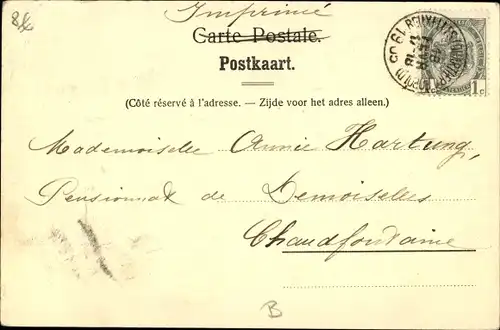 8k
Imprimé
Carte Postale.
Postkaart.
1 c
(Côté réservé à l'adresse. — Zijde voor het adres alleen.)
Mademoiselle Annie Hartung,
Pensionnat de Demoiselles
Chaudfontaine
B